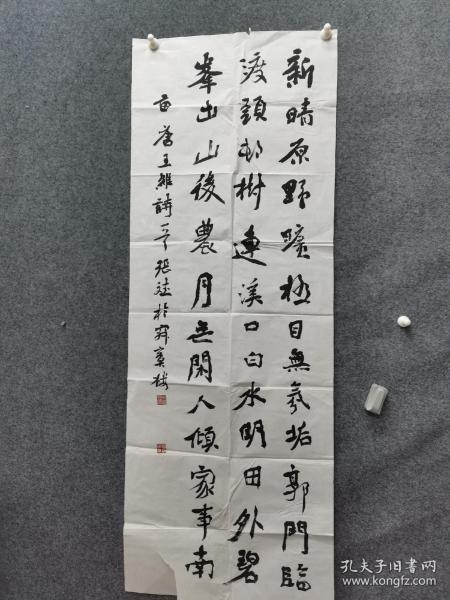 新晴原野曠極目無氛垢郭門臨
渡頭邨樹連溪口白水明田外碧
峯出山後農月無閑人傾家事南
王維詩一首張
孔夫子旧书网
www.kongfz.com